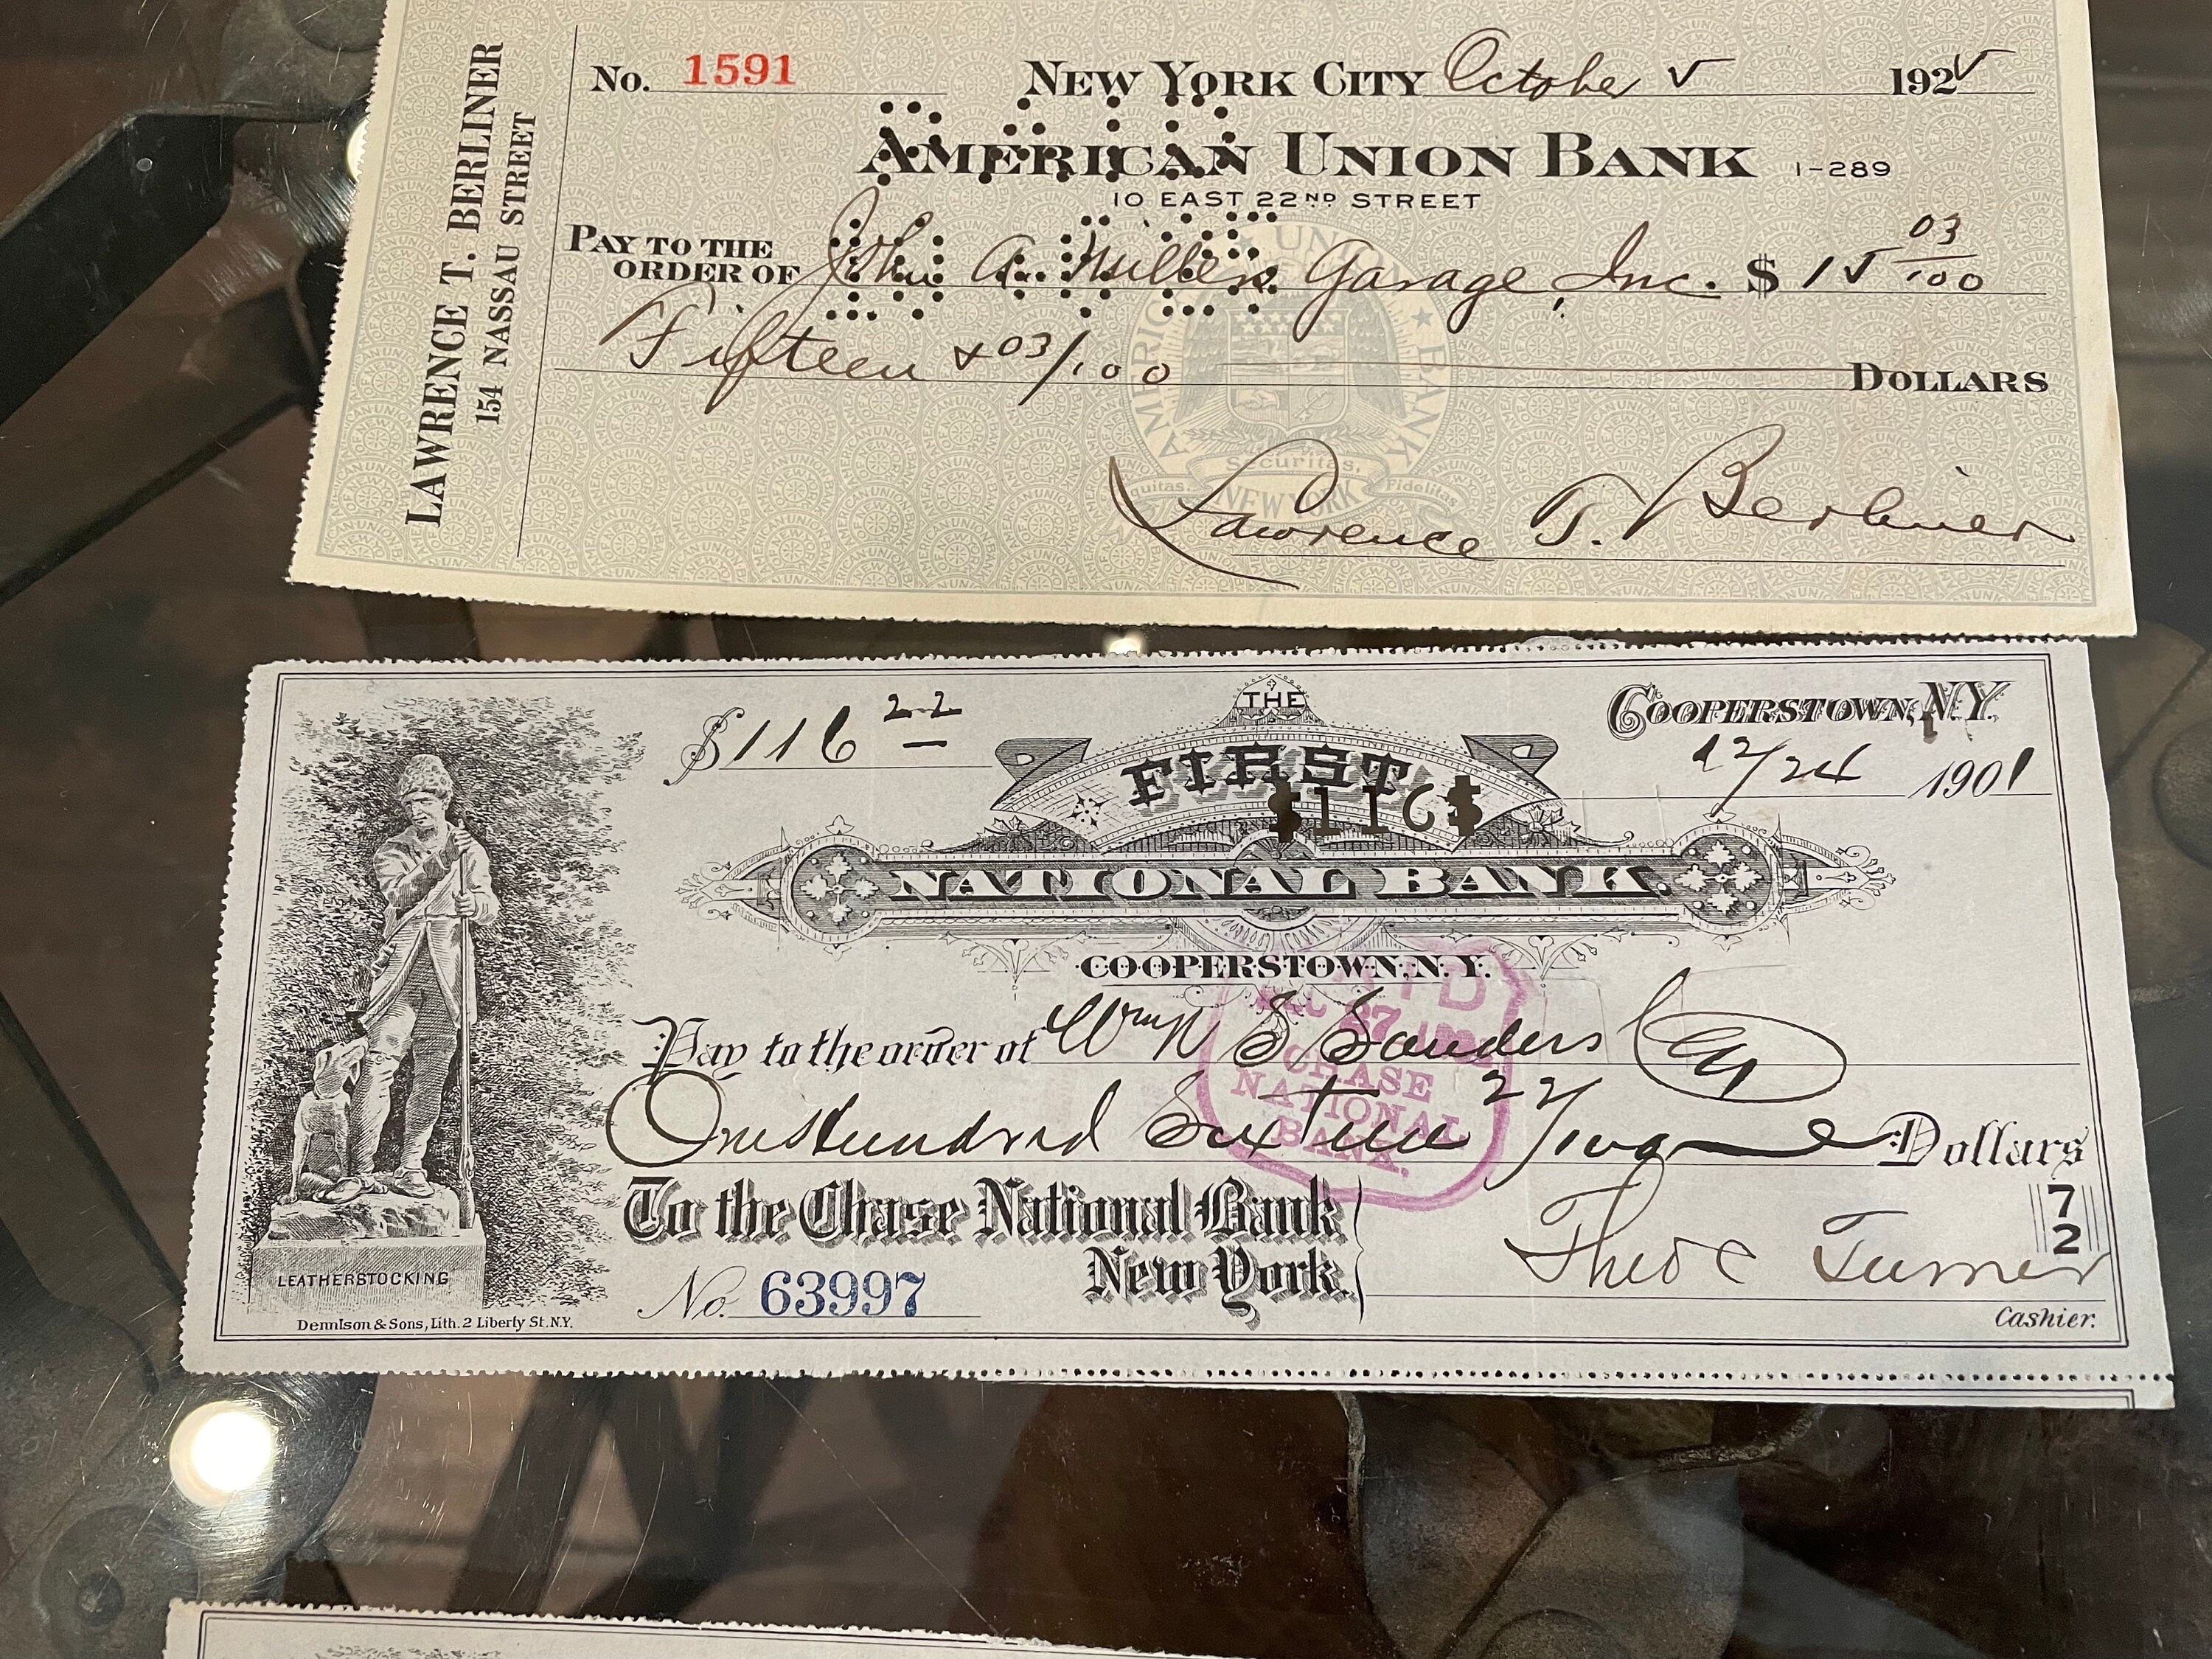 LAWRENCE T. BERLINER
154 NASSAU STREET
No. 1591 NEW YORK CITY October 5 1925
AMERICAN UNION BANK 1-289
10 EAST 22ND STREET
PAY TO THE ORDER OF John A. Miller Garage, Inc. $ 15 03/100
Fifteen + 03/100 DOLLARS
AMERICAN UNION BANK
Securitas.
Equitas. NEW YORK Fidelitas
Lawrence T. Berliner
$116 22
THE
FIRST
$116$
NATIONAL BANK.
COOPERSTOWN, N.Y.
COOPERSTOWN, N.Y.
12/24 1901
Pay to the order of Wm S Sanders
One Hundred Sixteen 22/100 Dollars
PAID
27
CHASE
NATIONAL
BANK.
To the Chase National Bank
New York.
No. 63997
72
Theo C Turner
Cashier.
LEATHERSTOCKING
Dennison & Sons, Lith. 2 Liberty St. N.Y.